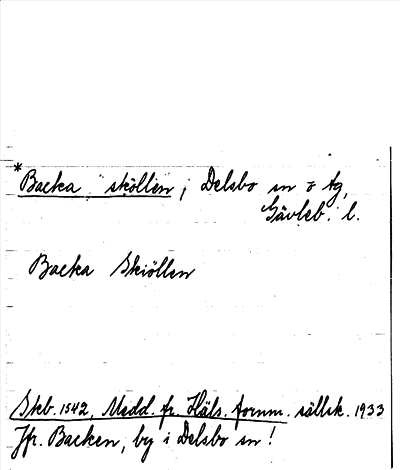 *Backa sköllen, i Delsbo sn o tg,
Gävleb. l.
Backa Skiöllen
Skb. 1542, Medd. fr. Häls. fornm. sällsk. 1933
Jfr. Backen, by i Delsbo sn!